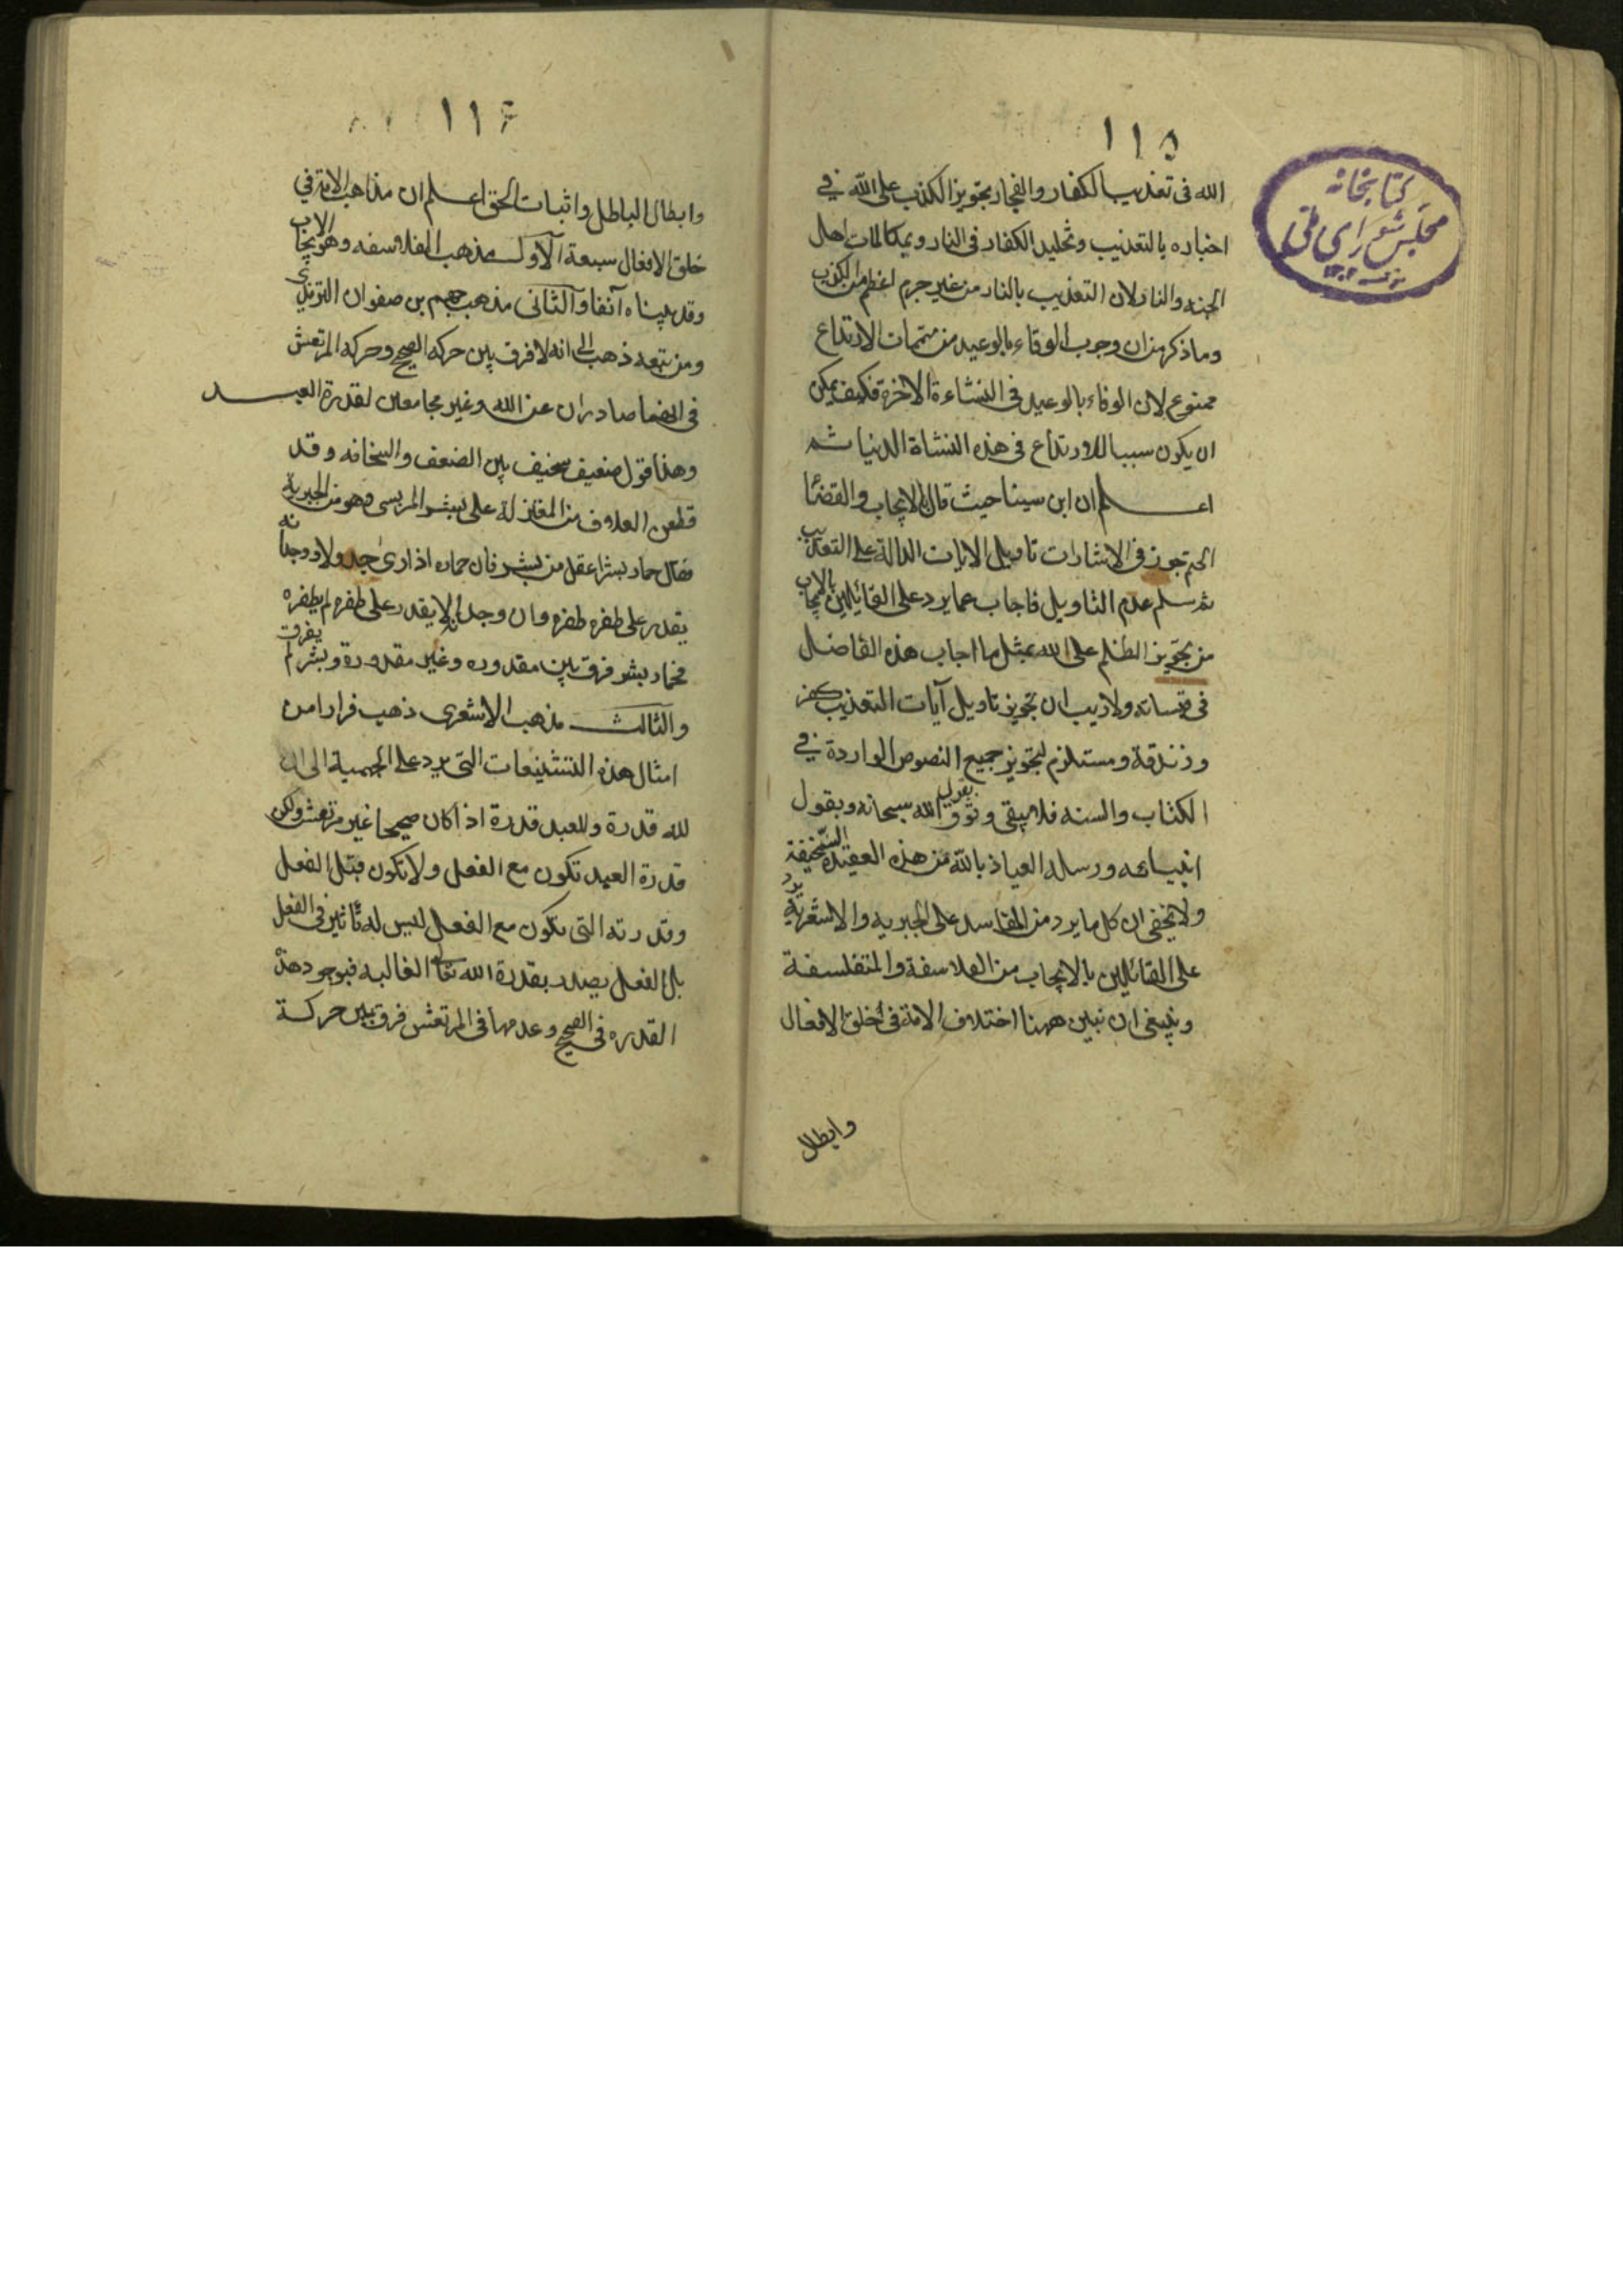 ١١٥
كتابخانه
مجلس شورای ملی
الله فى تعذيب الكفار والفجار بتجويز الكذب على الله فى
اخباره بالتعذيب وتخليد الكفار فى النار وبمكالمات اهل
الجنه والنار لان التعذيب بالنار من غير جرم اعظم من الكذب
وما ذكر من ان وجوب الوفاء بالوعيد من متممات الارتداع
ممنوع لان الوفاء بالوعيد فى النشاءة الاخرة فكيف يمكن
ان يكون سببا للارتداع فى هذه النشاة الدنيا ثم
اعلم ان ابن سينا حيث قال بالايجاب والقضا
الحتم تجوز فى الاشارات تاويل الايات الدالة على التعذيب
ثم سلم عدم التاويل فاجاب عما يرد على القائلين بالايجاب
من تجويز الظلم على الله بمثل ما اجاب هذه الفاضل
فى قبساته ولا ريب ان تجويز تاويل آيات التعذيب كفر
وزندقة ومستلزم لتجويز جميع النصوص الواردة فى
الكتاب والسنه فلا يبقى وثوق بقول الله سبحانه وبقول
انبيائه ورسله العياذ بالله من هذه العقيدة السخيفة
ولا يخفى ان كل ما يرد من المفاسد على الجبريه والاشعرية يرد
على القائلين بالايجاب من الفلاسفة والمتفلسفة
وينبغى ان نبين ههنا اختلاف الامة فى خلق الافعال
وابطال
١١۶
وابطال الباطل واثبات الحق اعلم ان مذاهب الامة فى
خلق الافعال سبعة الاول مذهب الفلاسفه وهو الايجاب
وقد بيناه آنفا والثانى مذهب جهم بن صفوان الترمذى
ومن تبعه ذهب الى انه لا فرق بين حركه الصحيح وحركه المرتعش
فى انهما صادران عن الله وغير مجامعين لقدرة العبد
وهذا قول ضعيف سخيف بين الضعف والسخافه وقد
قطعن العلاف من المعتزلة على بشر المريسى وهو من الجبرية
فقال حمار بشر اعقل من بشر فان حماره اذا رى جدولا ووجد انه
يقدر على طفره طفره وان وجد انه لا يقدر على طفره لم يطفره
فحمار بشر فرق بين مقدوره وغير مقدوره وبشر لم يفرق
والثالث مذهب الاشعرى ذهب فرارا من
امثال هذه التشنيعات التى يرد على الجهمية الى ان
لله قدرة وللعبد قدرة اذا كان صحيحا غير مرتعش ولكن
قدرة العبد تكون مع الفعل ولا تكون قبل الفعل
وقدرته التى تكون مع الفعل ليس له تاثير فى الفعل
بل الفعل يصدر بقدرة الله تعالى الغالبه فبوجود هذه
القدره فى الصحيح وعدمها فى المرتعش فرق بين حركة